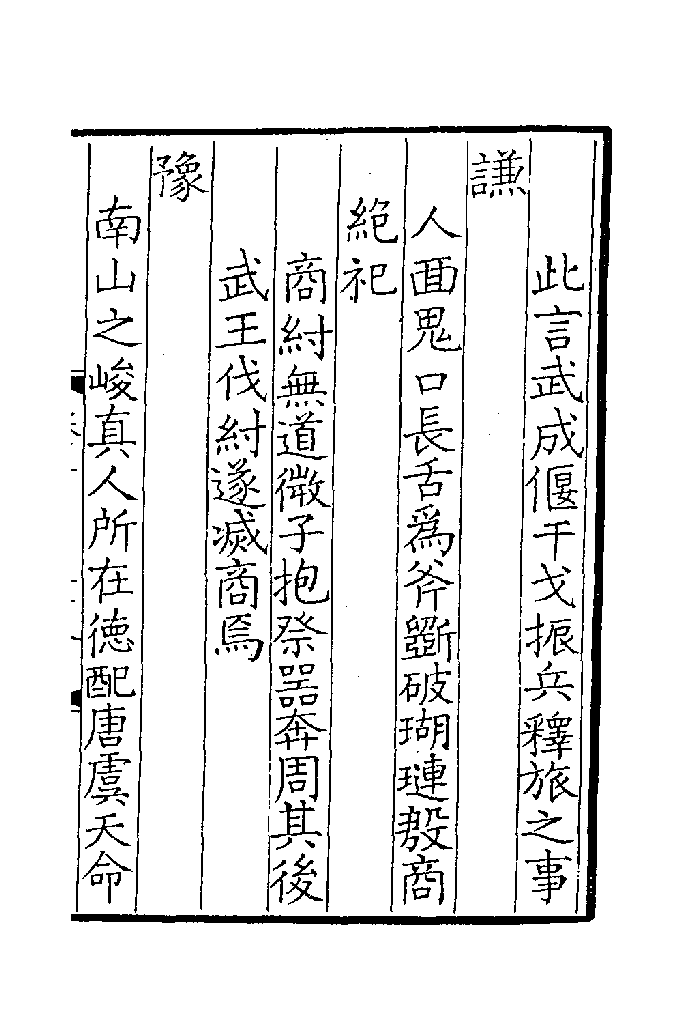 此言武成偃干戈振兵釋旅之事
謙
人面鬼口長舌爲斧斲破瑚璉殷商
絶祀
商紂無道微子抱祭噐奔周其後
武王伐紂遂滅商焉
豫
南山之峻真人所在德配唐虞天命